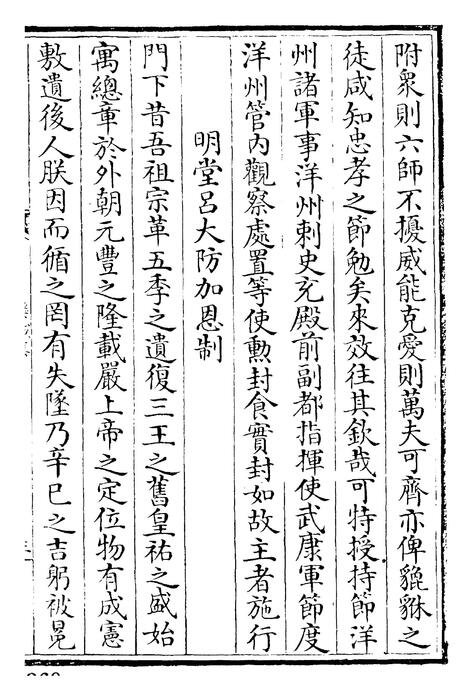 附衆則六師不擾威能克愛則萬夫可齊亦俾貔貅之
徒咸知忠孝之節勉矣來效往其欽哉可特授持節洋
州諸軍事洋州刺史充殿前副都指揮使武康軍節度
洋州管内觀察處置等使勲封食實封如故主者施行
明堂呂大防加恩制
門下昔吾祖宗革五季之遺復三王之舊皇祐之盛始
寓總章於外朝元豐之隆載嚴上帝之定位物有成憲
敷遺後人朕因而循之罔有失墜乃辛巳之吉躬被冕